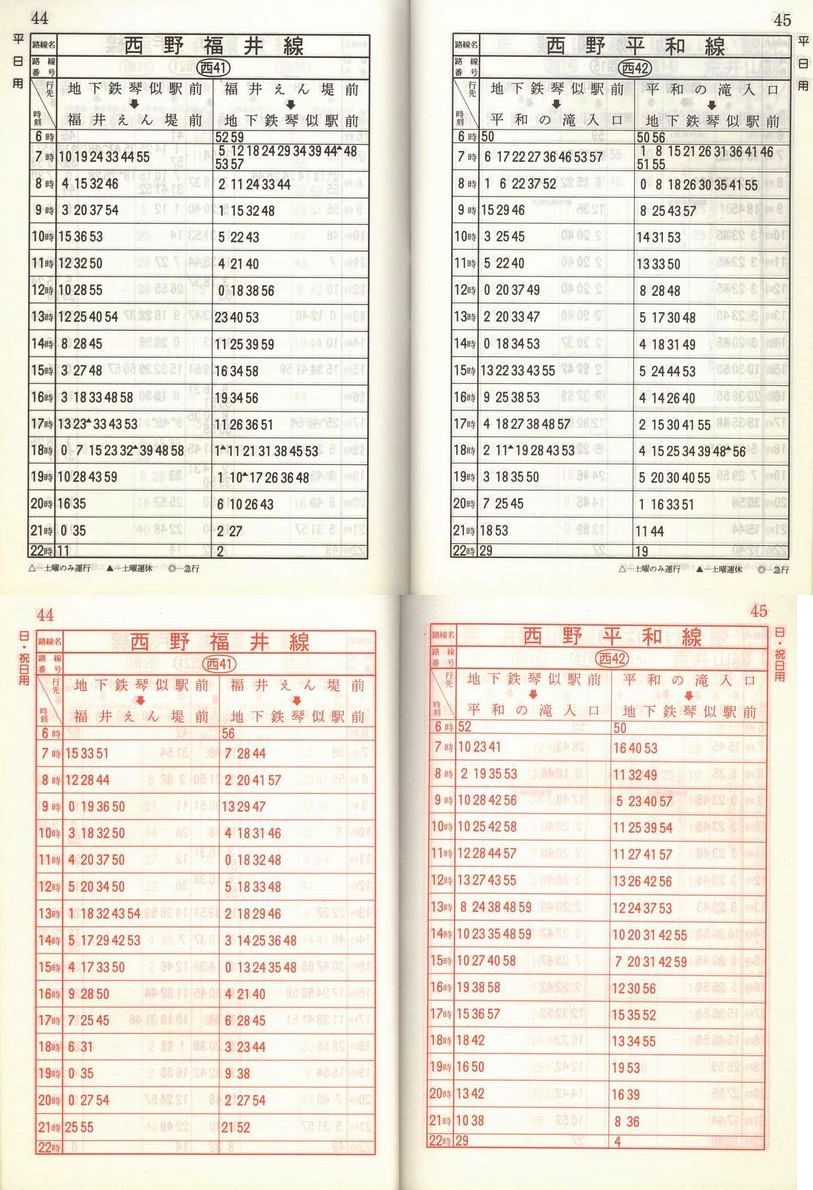 44
平日用
路線名 西野福井線
路線番号 西41
行先 時刻 地下鉄琴似駅前 ➡ 福井えん堤前 福井えん堤前 ➡ 地下鉄琴似駅前
6時 52 59
7時 10 19 24 33 44 55 5 12 18 24 29 34 39 44▲48
53 57
8時 4 15 32 46 2 11 24 33 44
9時 3 20 37 54 1 15 32 48
10時 15 36 53 5 22 43
11時 12 32 50 4 21 40
12時 10 28 55 0 18 38 56
13時 12 25 40 54 23 40 53
14時 8 28 45 11 25 39 59
15時 3 27 48 16 34 58
16時 3 18 33 48 58 19 34 56
17時 13 23▲33 43 53 11 26 36 51
18時 0 7 15 23 32▲39 48 58 1▲11 21 31 38 45 53
19時 10 28 43 59 1 10▲17 26 36 48
20時 16 35 6 10 26 43
21時 0 35 2 27
22時 11 2
△―土曜のみ運行 ▲―土曜運休 ◎―急行
45
平日用
路線名 西野平和線
路線番号 西42
行先 時刻 地下鉄琴似駅前 ➡ 平和の滝入口 平和の滝入口 ➡ 地下鉄琴似駅前
6時 50 50 56
7時 6 17 22 27 36 46 53 57 1 8 15 21 26 31 36 41 46
51 55
8時 1 6 22 37 52 0 8 18 26 30 35 41 55
9時 15 29 46 8 25 43 57
10時 3 25 45 14 31 53
11時 5 22 40 13 33 50
12時 0 20 37 49 8 28 48
13時 2 20 33 47 5 17 30 48
14時 0 18 34 53 4 18 31 49
15時 13 22 33 43 55 5 24 44 53
16時 9 25 38 53 4 14 26 40
17時 4 18 27 38 48 57 2 15 30 41 55
18時 2 11▲19 28 43 53 4 15 25 34 39 48▲56
19時 3 18 35 50 5 20 30 40 55
20時 7 25 45 1 16 33 51
21時 18 53 11 44
22時 29 19
△―土曜のみ運行 ▲―土曜運休 ◎―急行
44
日・祝日用
路線名 西野福井線
路線番号 西41
行先 時刻 地下鉄琴似駅前 ➡ 福井えん堤前 福井えん堤前 ➡ 地下鉄琴似駅前
6時 56
7時 15 33 51 7 28 44
8時 12 28 44 2 20 41 57
9時 0 19 36 50 13 29 47
10時 3 18 32 50 4 18 31 46
11時 4 20 37 50 0 18 32 48
12時 5 20 34 50 5 18 33 48
13時 1 18 32 43 54 2 18 29 46
14時 5 17 29 42 53 3 14 25 36 48
15時 4 17 33 50 0 13 24 35 48
16時 9 28 50 4 21 40
17時 7 25 45 6 28 45
18時 6 31 3 23 44
19時 0 35 9 38
20時 0 27 54 2 27 54
21時 25 55 21 52
22時
45
日・祝日用
路線名 西野平和線
路線番号 西42
行先 時刻 地下鉄琴似駅前 ➡ 平和の滝入口 平和の滝入口 ➡ 地下鉄琴似駅前
6時 52 50
7時 10 23 41 16 40 53
8時 2 19 35 53 11 32 49
9時 10 28 42 56 5 23 40 57
10時 10 25 42 58 11 25 39 54
11時 12 28 44 57 11 27 41 57
12時 13 27 43 55 13 26 42 56
13時 8 24 38 48 59 12 24 37 53
14時 10 23 35 48 59 10 20 31 42 55
15時 10 27 40 58 7 20 31 42 59
16時 19 38 58 12 30 56
17時 15 36 57 15 35 52
18時 18 42 13 34 55
19時 16 50 19 53
20時 13 42 16 39
21時 10 38 8 36
22時 29 4